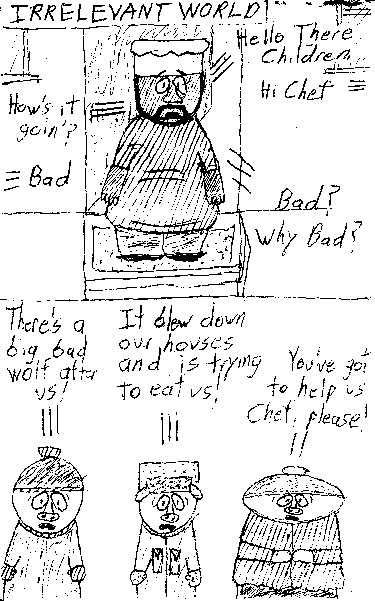 IRRELEVANT WORLD!
Hello There
Children
Hi Chef
How's it
goin'?
Bad
Bad?
Why Bad?
There's a
big bad
wolf after
us!
It blew down
our houses
and is trying
to eat us!
You've got
to help us
Chef, please!